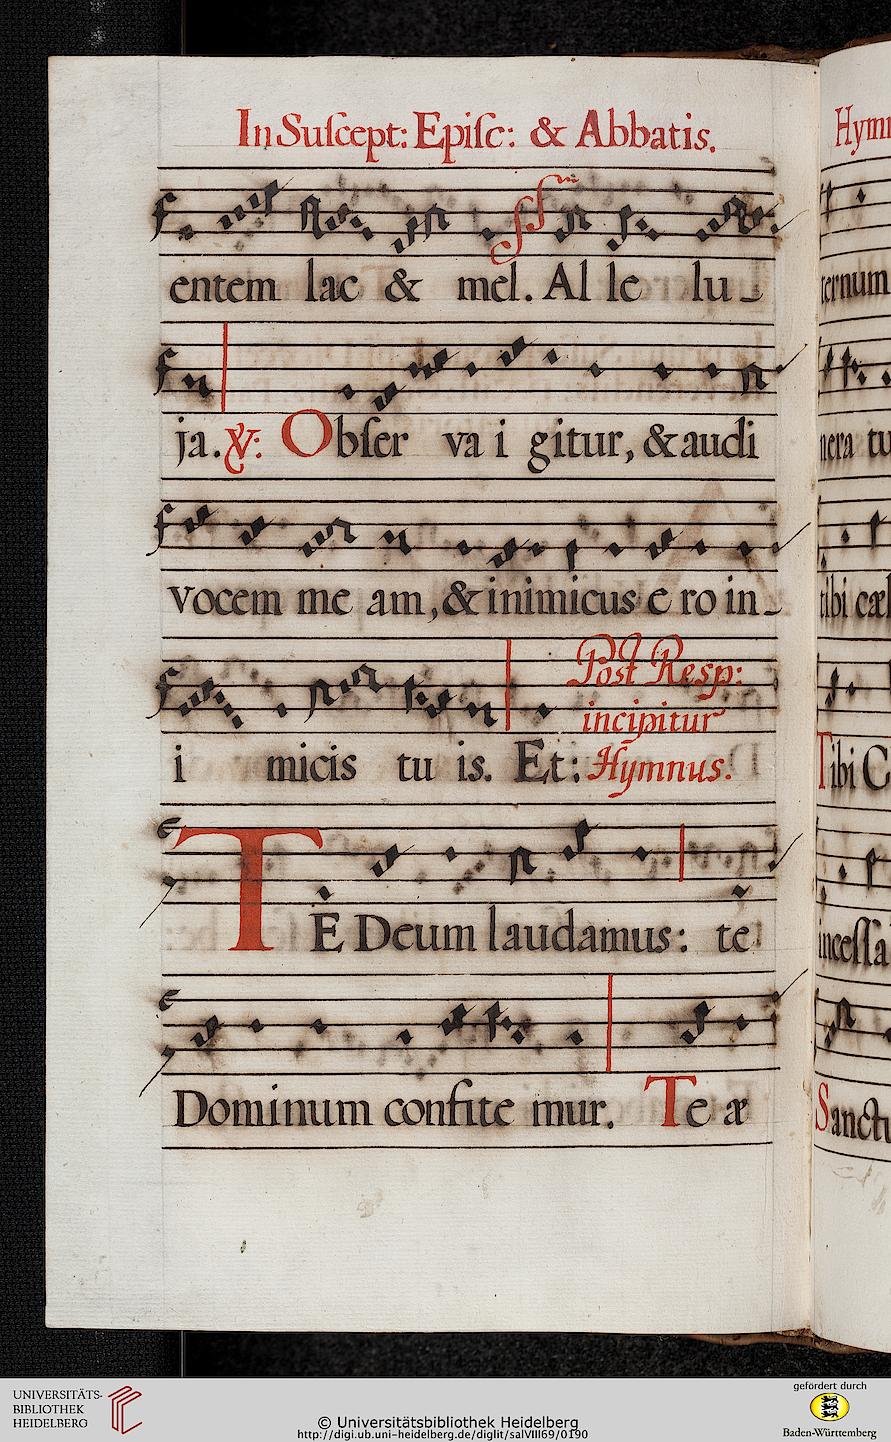 In Suſcept: Epiſc: & Abbatis.
entem lac & mel. Al le lu_
ja. ℣: Obſer va i gitur, & audi
vocem me am, & inimicus e ro in_
Post Resp:
incipitur
i micis tu is. Et: Hymnus.
TE Deum laudamus: te
Dominum confite mur. Te æ
Hym
ternum
nera tu
tibi cæl
Tibi C
inceſſa
Sanctu
UNIVERSITÄTS-
BIBLIOTHEK
HEIDELBERG
© Universitätsbibliothek Heidelberg
http://digi.ub.uni-heidelberg.de/diglit/salVIII69/0190
gefördert durch
Baden-Württemberg